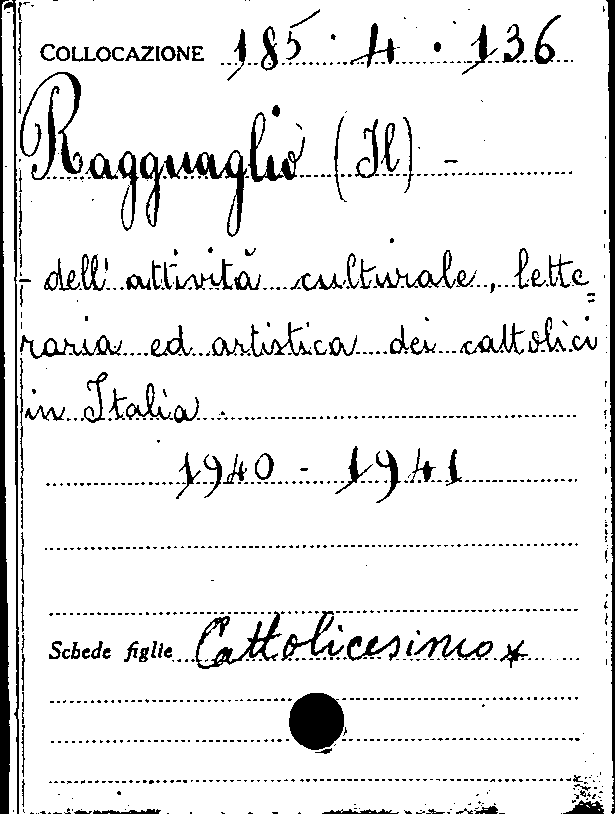 COLLOCAZIONE 185 · 4 · 136
Ragguaglio (Il) -
- dell' attività culturale, lette=
raria ed artistica dei cattolici
in Italia .
1940 - 1941
Schede figlie Cattolicesimo *